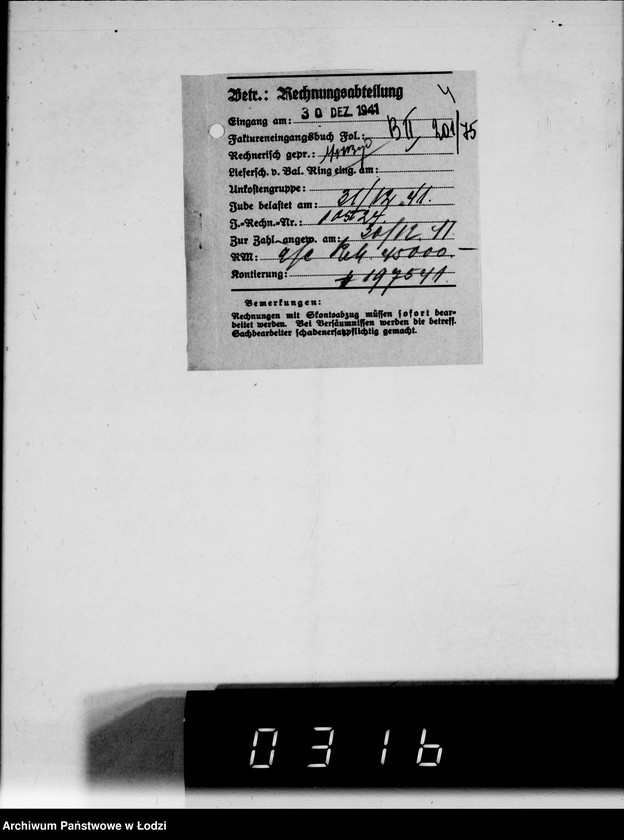 Betr.: Rechnungsabteilung
Eingang am: 30 DEZ. 1941
Faktureneingangsbuch Fol.: B II, 201/75
Rechnerisch gepr.:
Liefersch. v. Bal. Ring eing. am:
Unkostengruppe:
Jude belastet am: 31/12.41.
J.-Rechn.-Nr.: 10524.
Zur Zahl. angew. am: 30/12.41
RM: a/c 45000.—
Kontierung: 197541
Bemerkungen:
Rechnungen mit Skontoabzug müssen sofort bear-
beitet werden. Bei Versäumnissen werden die betreff.
Sachbearbeiter schadenersatzpflichtig gemacht.
0316
Archiwum Państwowe w Łodzi